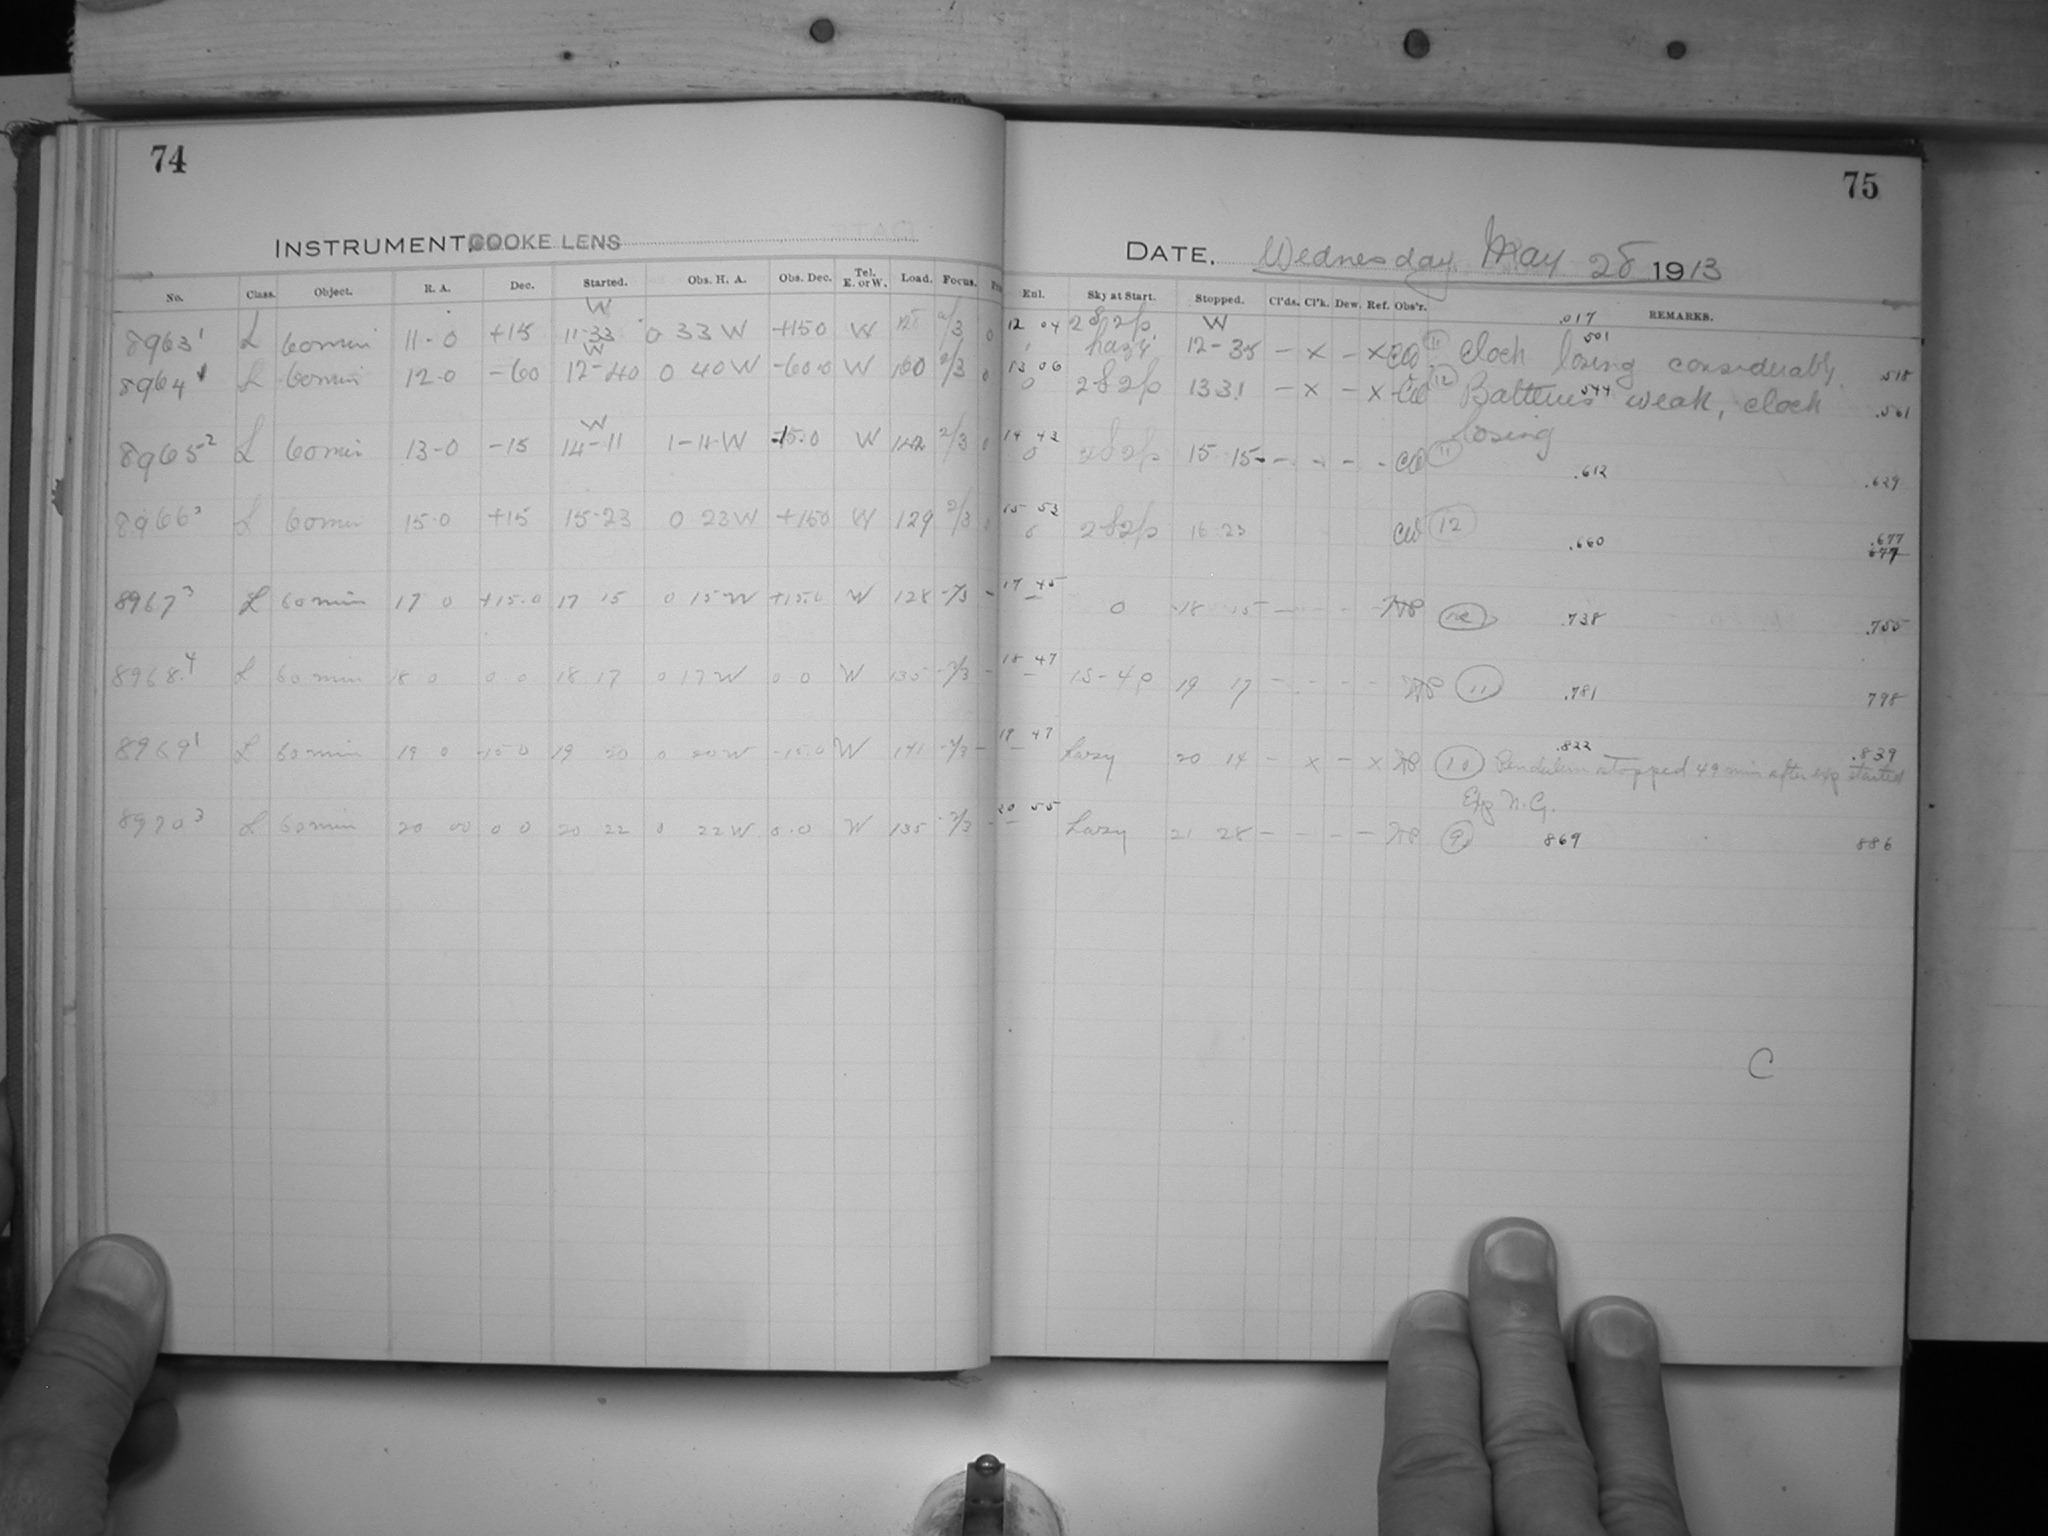 74
75
INSTRUMENT, COOKE LENS
DATE. Wednesday May 28 1913
No. Class. Object. R. A. Dec. Started. Obs. H. A. Obs. Dec. Tel. E. or W. Load. Focus. Enl. Sky at Start. Stopped. Cl'ds. Cl'k. Dew. Ref. Obs'r. REMARKS.
W 12 04 W .017
8963 1 L 60 min 11-0 +15 11-33 0 33 W +15 0 W 128 2/3 0 hazy 12-35 - x - x CW 11 501 Clock losing considerably. .518
W 13 06
8964 L 60 min 12-0 -60 12-40 0 40 W -60.0 W 160 2/3 0 0 13 31 - x - x CW 12 .544 Batteries weak, clock losing .561
W 14 43
8965 2 L 60 min 13-0 -15 14-11 1-11 W -15.0 W 142 2/3 0 0 15 15 - - - - CW 11 .612 .629
15 53
8966 3 L 60 min 15.0 +15 15-23 0 23 W +150 W 129 2/3 0 0 16 23 CW 12 .660 .677
677
17 45
8967 3 L 60 min 17 0 +15.0 17 15 0 15 W +15.0 W 128 -2/3 - - 0 18 15 - - - - .738 .755
18 47
8968 4 L 60 min 18 0 0.0 18 17 0 17 W 0 0 W 135 -2/3 - - 19 17 - - - - 11 .781 798
19 47
8969 1 L 60 min 19 0 -15 0 19 20 0 20 W -15.0 W 141 -2/3 - - hazy 20 14 - x - x 10 .822 Pendulum stopped 49 min after exp started .839
Exp N.G.
20 55
8970 3 L 60 min 20 00 0 0 20 22 0 22 W 0.0 W 135 -2/3 - - hazy 21 28 - - - - 9 869 886
C